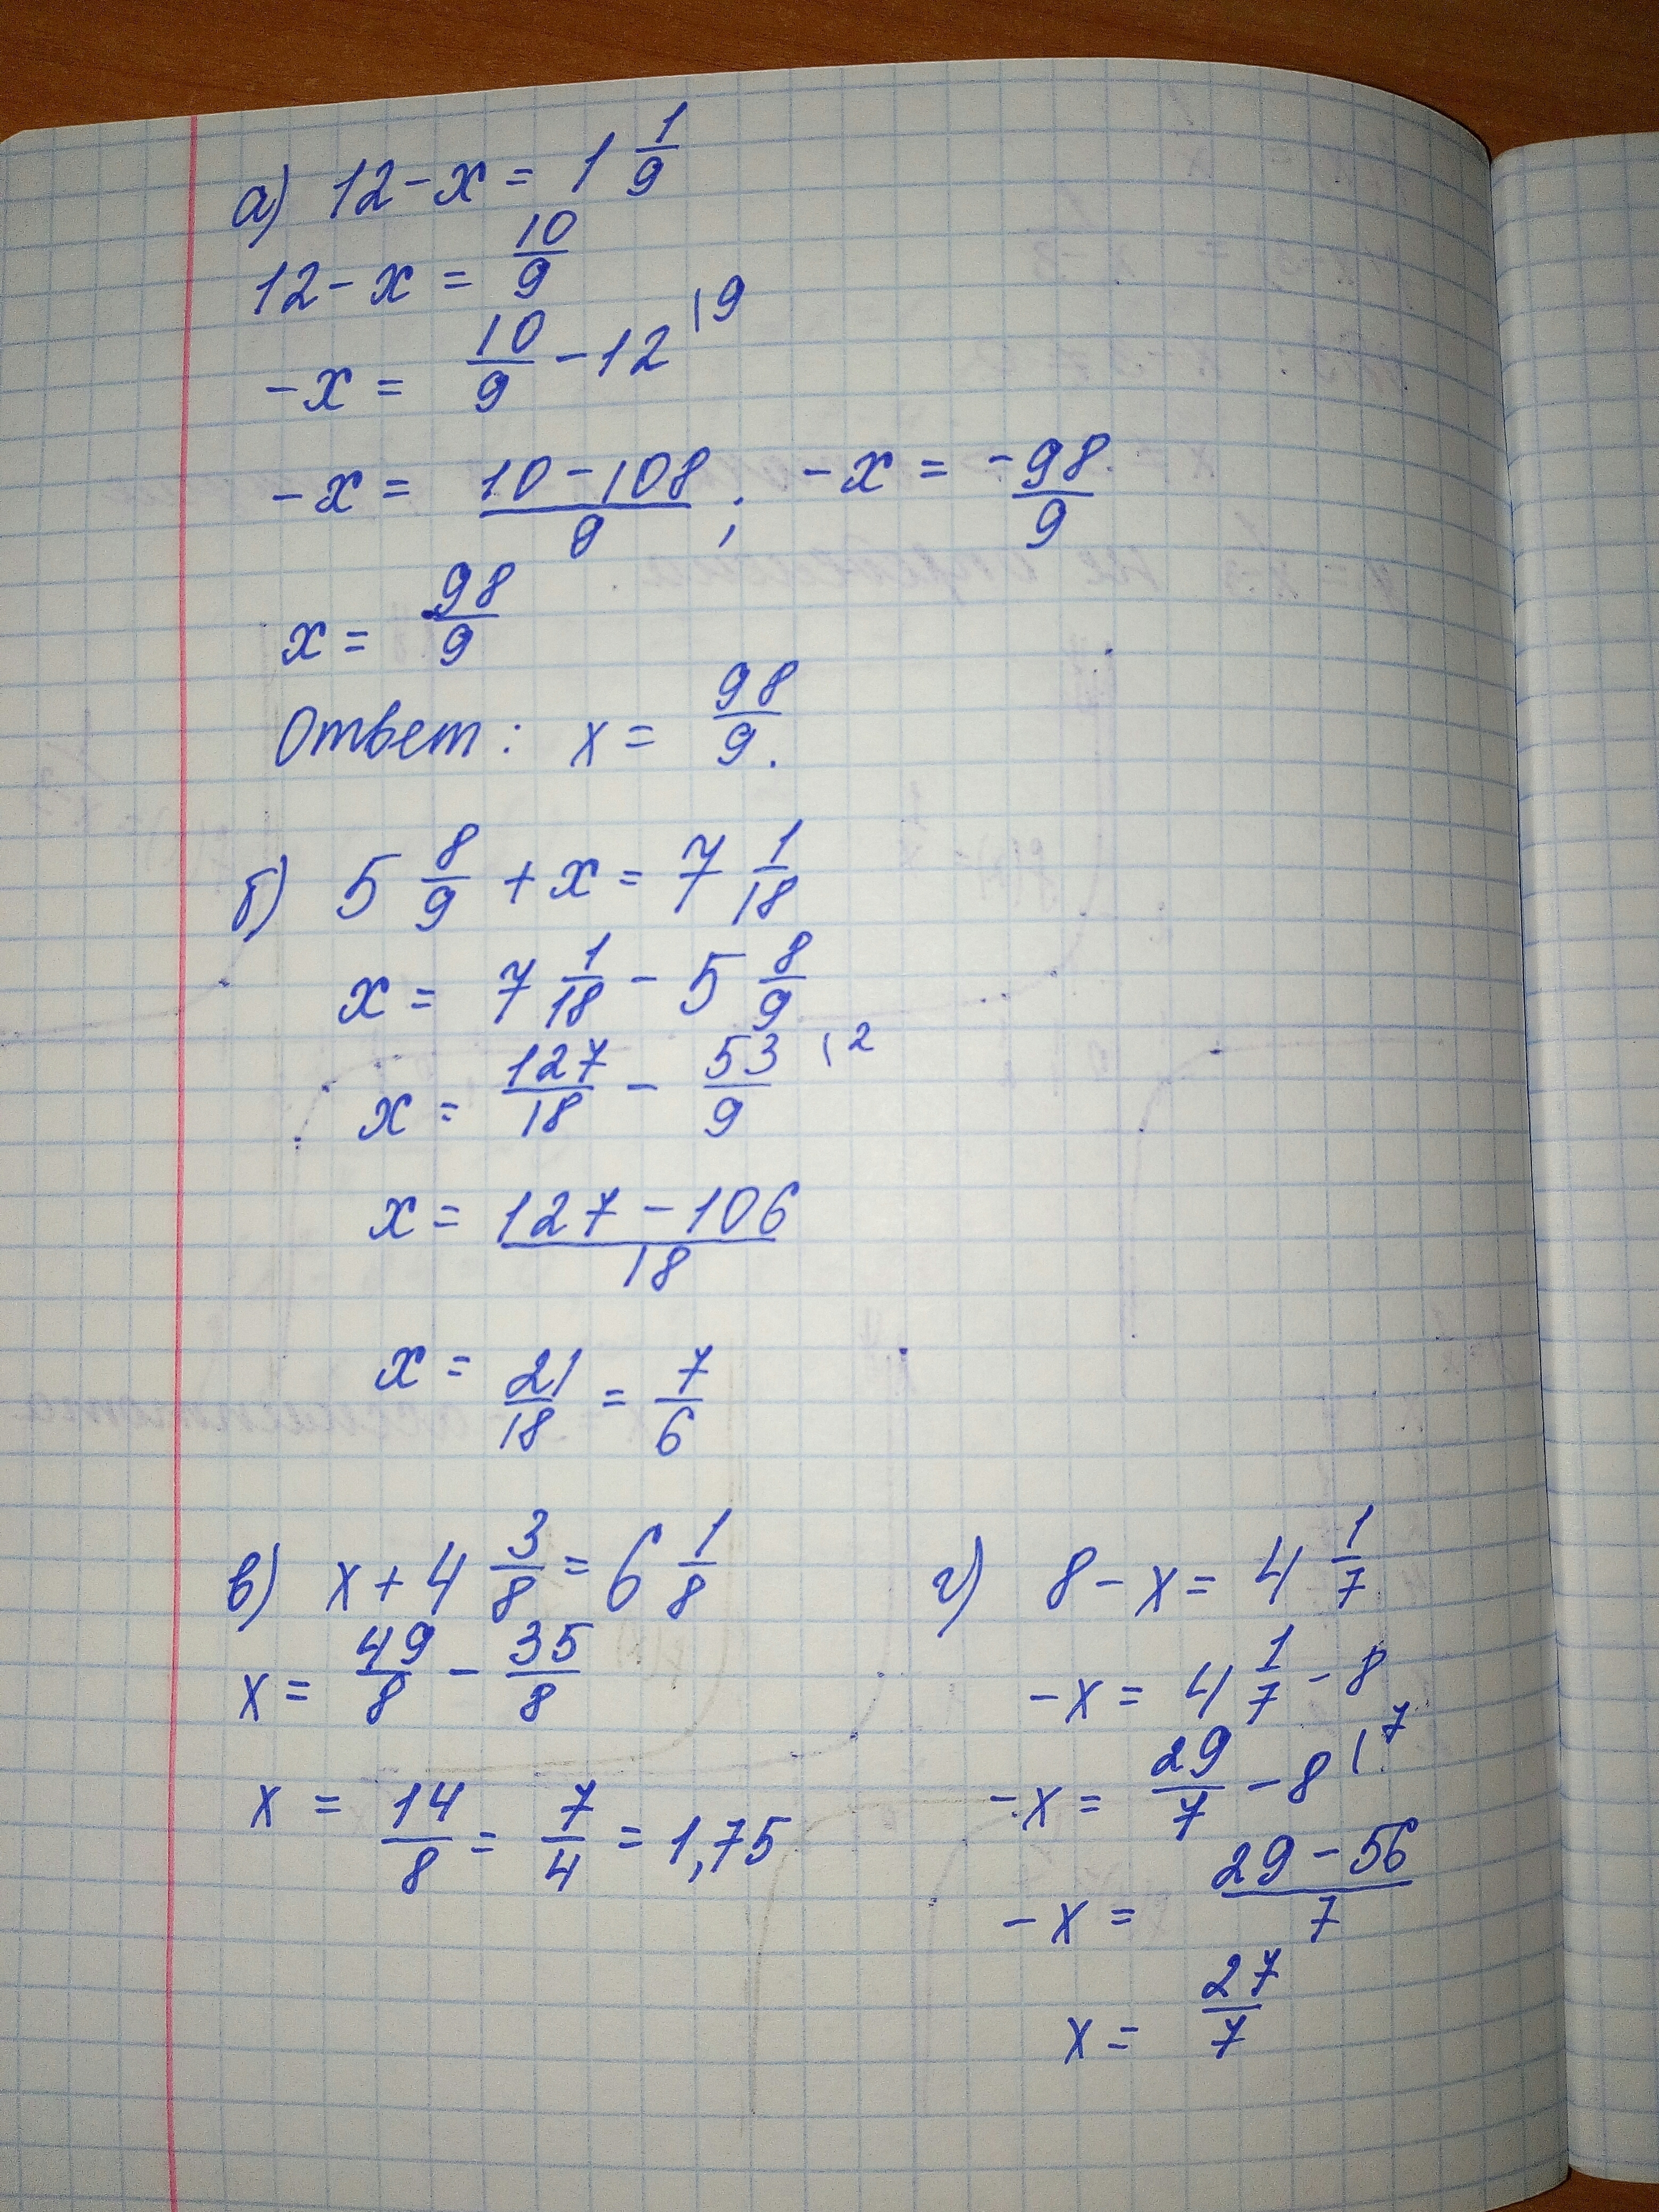 а) 12 - x = 1 1/9
12 - x = 10/9
-x = 10/9 - 12 |9
-x = (10 - 108)/9 ; -x = -98/9
x = 98/9
Ответ: x = 98/9.
б) 5 8/9 + x = 7 1/18
x = 7 1/18 - 5 8/9
x = 127/18 - 53/9 |2
x = (127 - 106)/18
x = 21/18 = 7/6
в) x + 4 3/8 = 6 1/8
x = 49/8 - 35/8
x = 14/8 = 7/4 = 1,75
г) 8 - x = 4 1/7
-x = 4 1/7 - 8
-x = 29/7 - 8 |7
-x = (29 - 56)/7
x = 27/7